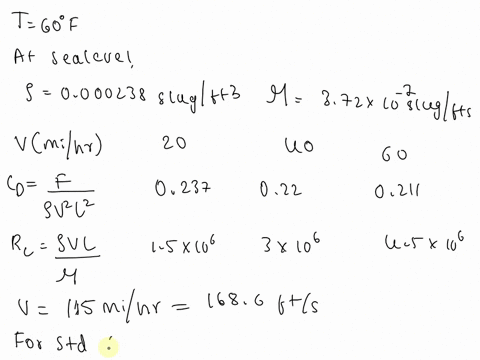 T=60°F
At sealevel,
ρ = 0.000238 slug/ft3 μ = 3.72 x 10^-7 slug/fts
V(mi/hr) 20 40 60
C_D = F / ρV²L² 0.237 0.22 0.211
R_L = ρVL / μ 1.5 x 10⁶ 3 x 10⁶ 4.5 x 10⁶
V = 115 mi/hr = 168.6 ft/s
For std :